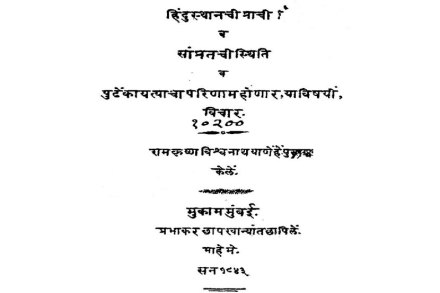 हिंदुस्थानची प्राचीन
व
सांप्रतची स्थिति
व
पुढें काय त्याचा परिणाम होणार, याविषयीं,
विचार.
१०२००
रामकृष्ण विश्वनाथ याणें हें पुस्तक
केलें.
मुकाम मुंबई.
प्रभाकर छापखान्यांत छापिलें.
माहे मे.
सन १८४३